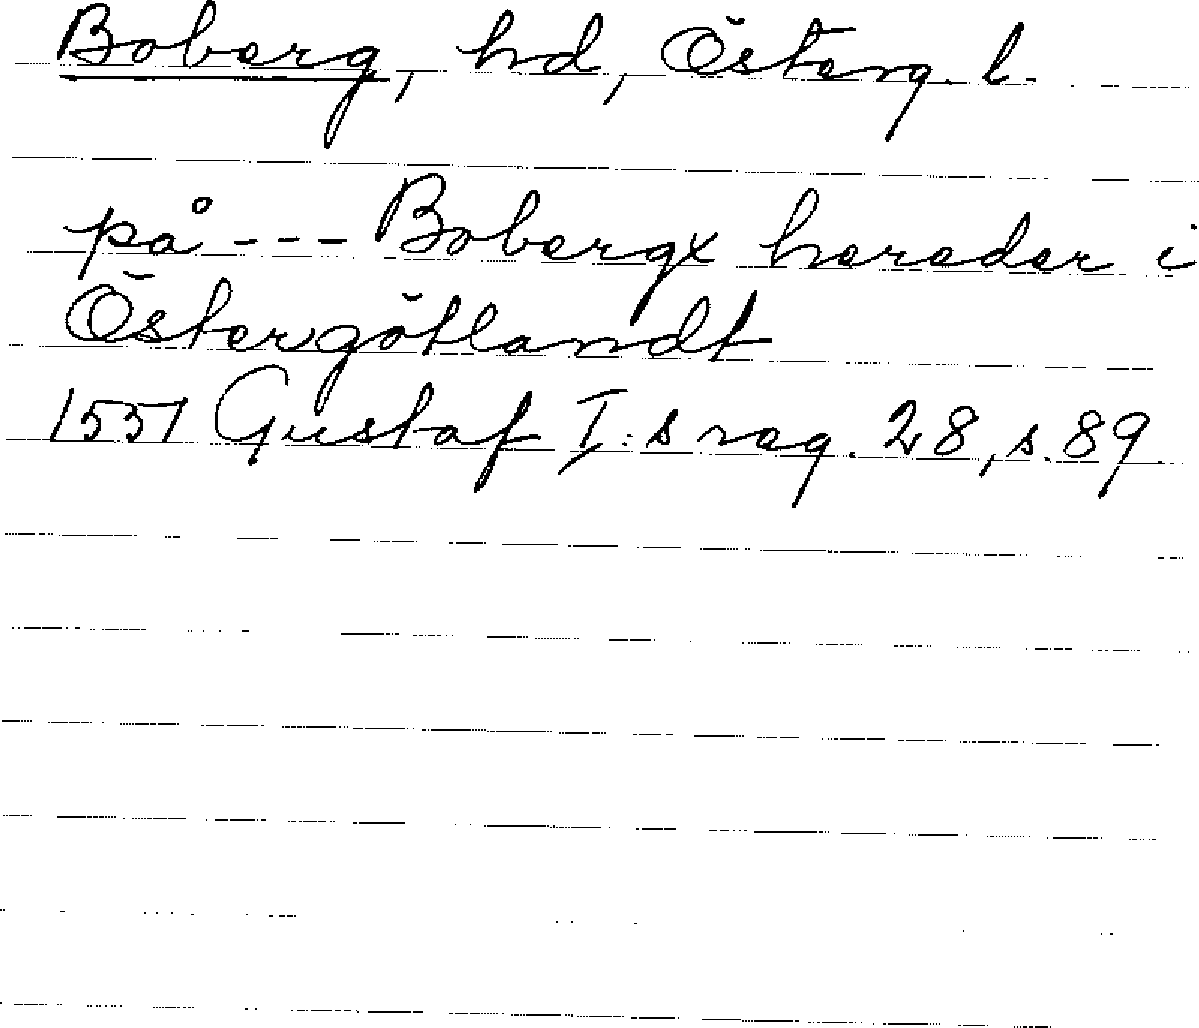 Boberg, hd, Österg. l.
på --- Bobergx hereder i
Östergötlandt
1557 Gustaf I:s reg. 28, s. 89